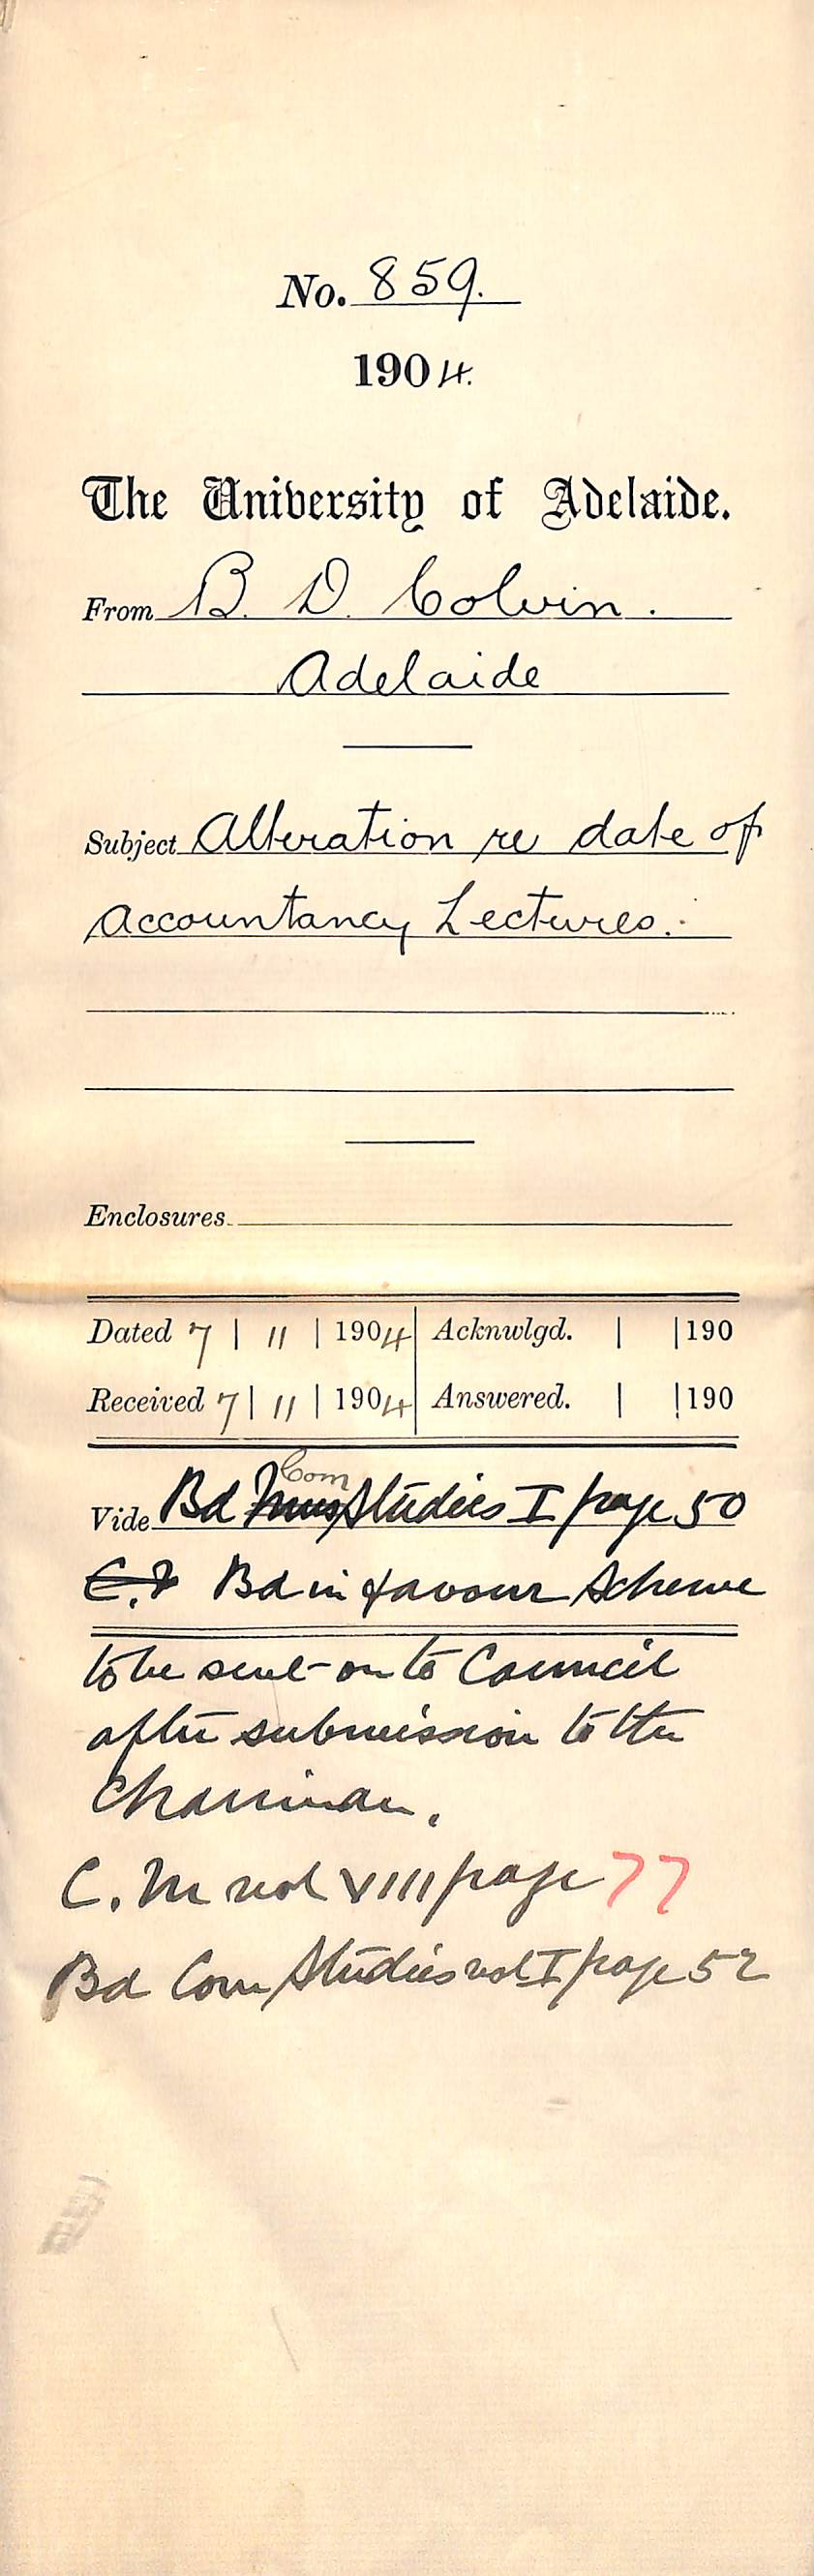 No. 859.
1904.
The University of Adelaide.
From B. D. Colvin.
Adelaide
Subject Alteration re date of
Accountancy Lectures.
Enclosures
Dated 7 | 11 | 1904 Acknwlgd. | | 190
Received 7 | 11 | 1904 Answered. | | 190
Com
Vide Bd Mus Studies I page 50
C. Bd in favour Scheme
to be sent on to Council
after submission to the
Chairman.
C. M vol VIII page 77
Bd Com Studies vol I page 52